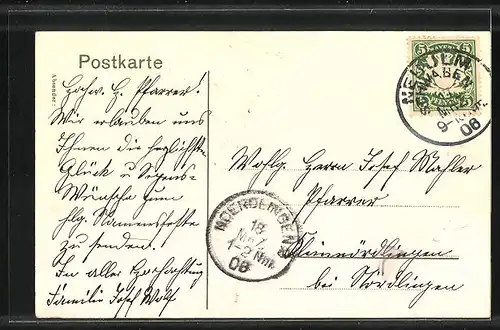 Postkarte
Absender:
Hochw. H. Pfarrer!
Wir erlauben uns
Ihnen die herzlichsten
Glück u Segens-
Wünsche zum
hlg. Namensfeste
zu senden.
In aller Hochachtung
Familie Josef Wolf
5 BAYERN 5
NEU-ULM
9-10
06
NOERDLINGEN 2
18
Mrz.
1-2 Nm.
06
Wohlg. Herrn Josef Mahler
Pfarrer
Kleinnördlingen
bei Nördlingen